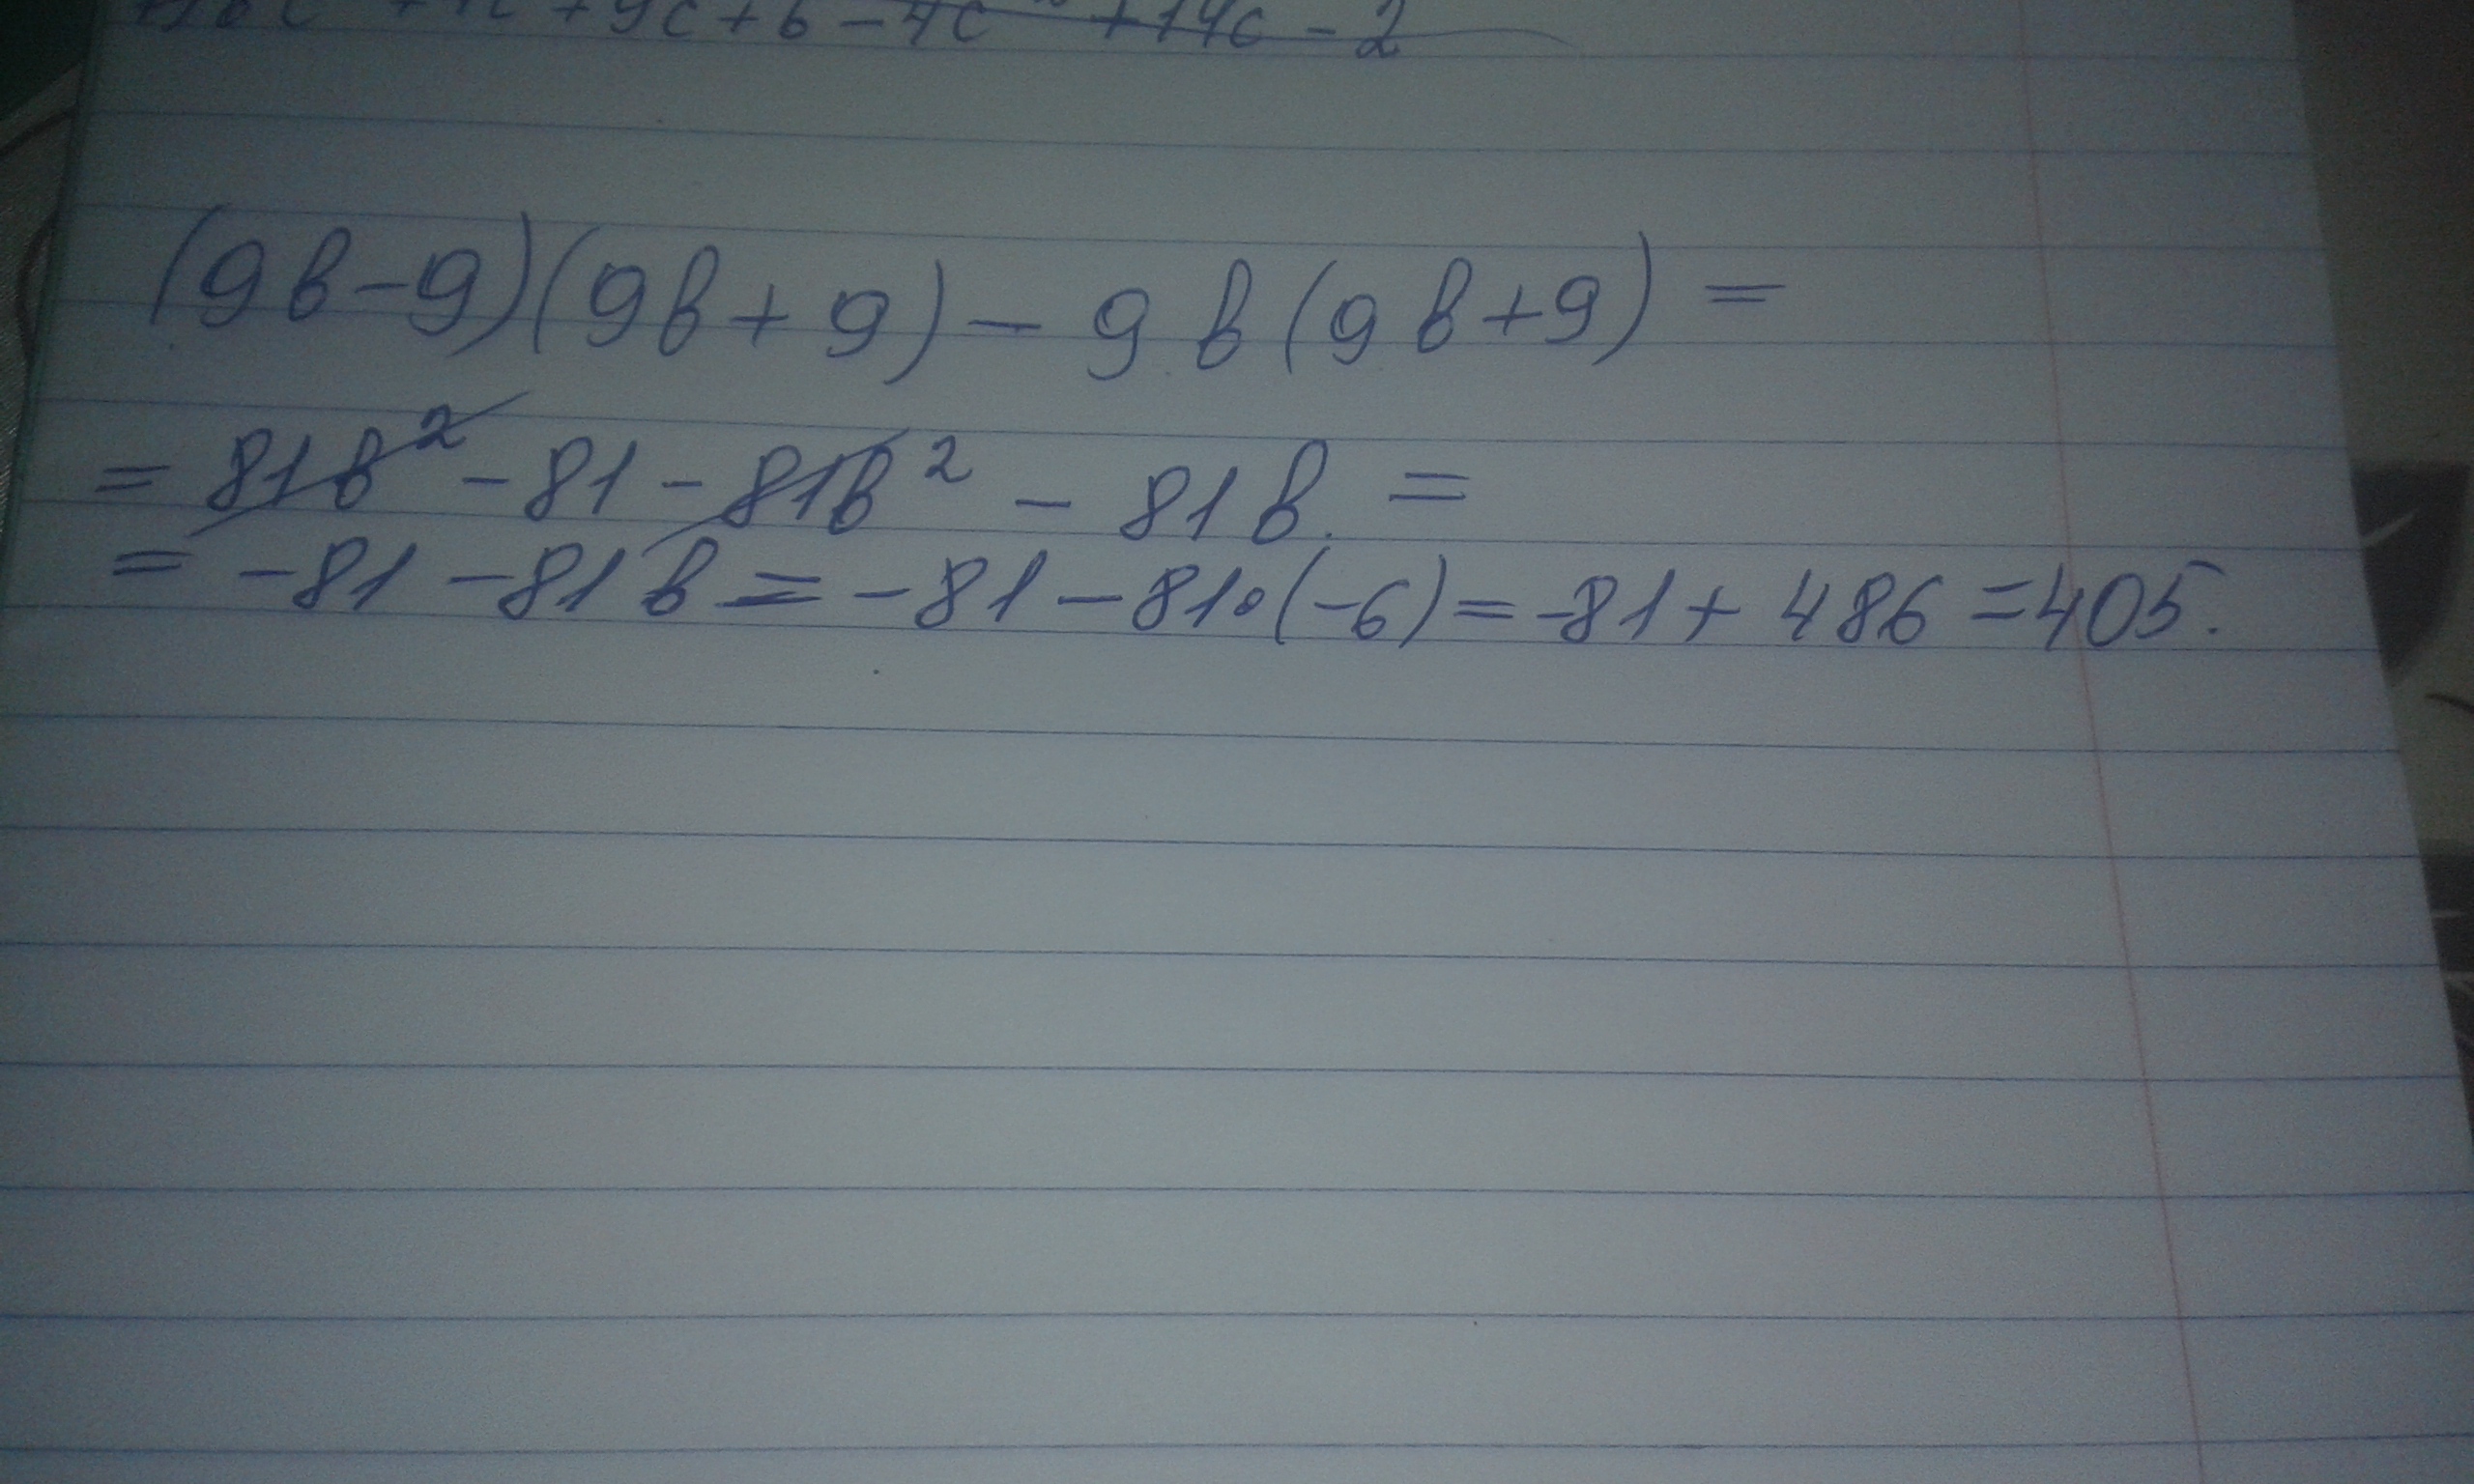 + 9c + 6 - 4c + 14c - 2
(9b-9)(9b+9) - 9b(9b+9) =
= 81b² - 81 - 81b² - 81b =
= -81 - 81b = -81 - 81·(-6) = -81 + 486 = 405.